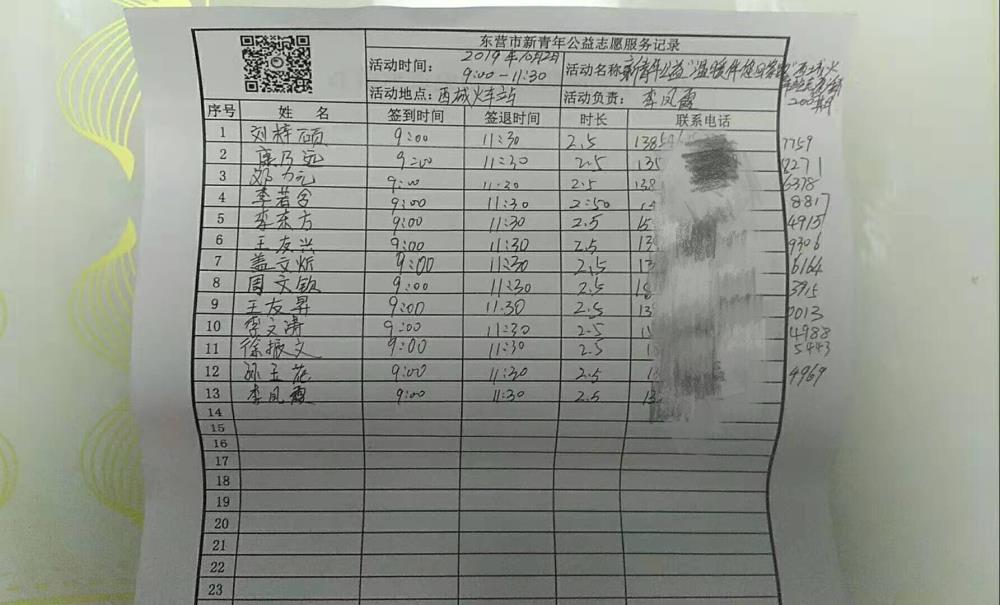 东营市新青年公益志愿服务记录
活动时间： 2019年10月2日 9:00-11:30 活动名称：新青年公益"温暖伴您回家路"西城火
活动地点：西城火车站 活动负责：李凤霞
序号 姓 名 签到时间 签退时间 时长 联系电话
1 刘梓硕 9:00 11:30 2.5 7759
2 9:00 11:30 2.5 135 8271
3 邓力元 9:00 11:30 2.5 138 6378
4 李若含 9:00 11:30 2:50 8817
5 李东方 9:00 11:30 2.5 15 4915
6 王友兴 9:00 11:30 2.5 13 9306
7 盖文炘 9:00 11:30 2.5 13 6164
8 周文钦 9:00 11:30 2.5 18 3915
9 王友昇 9:00 11.30 2.5 13 0013
10 李文涛 9:00 11:30 2.5 4988
11 徐振文 9:00 11:30 2.5 5443
12 孙玉花 9:00 11:30 2.5 4969
13 李凤霞 9:00 11:30 2.5 13
14
15
16
17
18
19
20
21
22
23